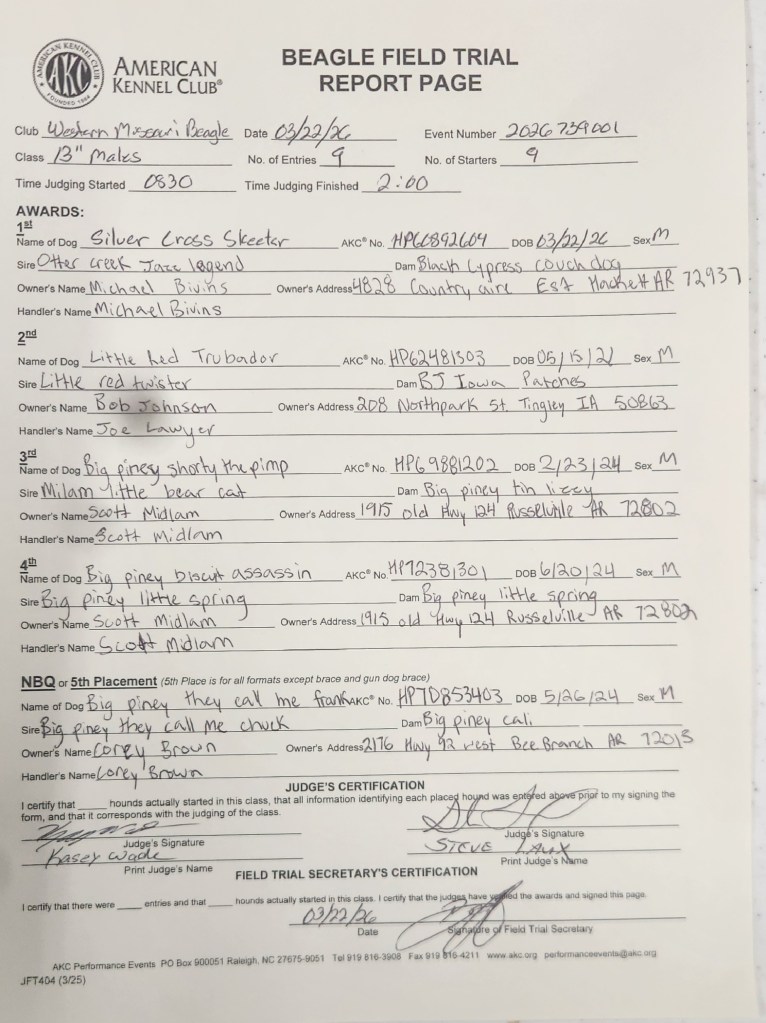 AMERICAN KENNEL CLUB
AKC
FOUNDED 1884
AMERICAN
KENNEL CLUB®
BEAGLE FIELD TRIAL
REPORT PAGE
Club Western Missouri Beagle Date 03/22/26 Event Number 2026739001
Class 13" Males No. of Entries 9 No. of Starters 9
Time Judging Started 0830 Time Judging Finished 2:00
AWARDS:
1st
Name of Dog Silver Cross Skeeter AKC® No. HP60892604 DOB 03/22/26 Sex M
Sire Otter Creek Jazz legend Dam Black Cypress couch dog
Owner's Name Michael Bivins Owner's Address 4828 Country aire Est Hackett AR 72937
Handler's Name Michael Bivins
2nd
Name of Dog Little Red Trubador AKC® No. HP62481303 DOB 05/15/21 Sex M
Sire Little red twister Dam BJ Iowa Patches
Owner's Name Bob Johnson Owner's Address 208 Northpark St. Tingley IA 50863
Handler's Name Joe Lawyer
3rd
Name of Dog Big piney shorty the pimp AKC® No. HP69881202 DOB 2/23/24 Sex M
Sire Milam little bear cat Dam Big piney tin lizzy
Owner's Name Scott Midlam Owner's Address 1915 old Hwy 124 Russelville AR 72802
Handler's Name Scott Midlam
4th
Name of Dog Big piney biscut assassin AKC® No. HP72381301 DOB 6/20/24 Sex M
Sire Big piney little spring Dam Big piney little spring
Owner's Name Scott Midlam Owner's Address 1915 old Hwy 124 Russelville AR 72802
Handler's Name Scott Midlam
NBQ or 5th Placement (5th Place is for all formats except brace and gun dog brace)
Name of Dog Big piney they call me frank AKC® No. HP70853403 DOB 5/26/24 Sex M
Sire Big piney they call me chuck Dam Big piney cali
Owner's Name Corey Brown Owner's Address 2176 Hwy 92 west Bee Branch AR 72013
Handler's Name Corey Brown
JUDGE'S CERTIFICATION
I certify that _____ hounds actually started in this class, that all information identifying each placed hound was entered above prior to my signing the
form, and that it corresponds with the judging of the class.
Judge's Signature Judge's Signature
Kasey Wade STEVE LAUX
Print Judge's Name Print Judge's Name
FIELD TRIAL SECRETARY'S CERTIFICATION
I certify that there were _____ entries and that _____ hounds actually started in this class. I certify that the judges have verified the awards and signed this page.
03/22/26
Date Signature of Field Trial Secretary
AKC Performance Events PO Box 900051 Raleigh, NC 27675-9051 Tel 919 816-3908 Fax 919 816-4211 www.akc.org performanceevents@akc.org
JFT404 (3/25)